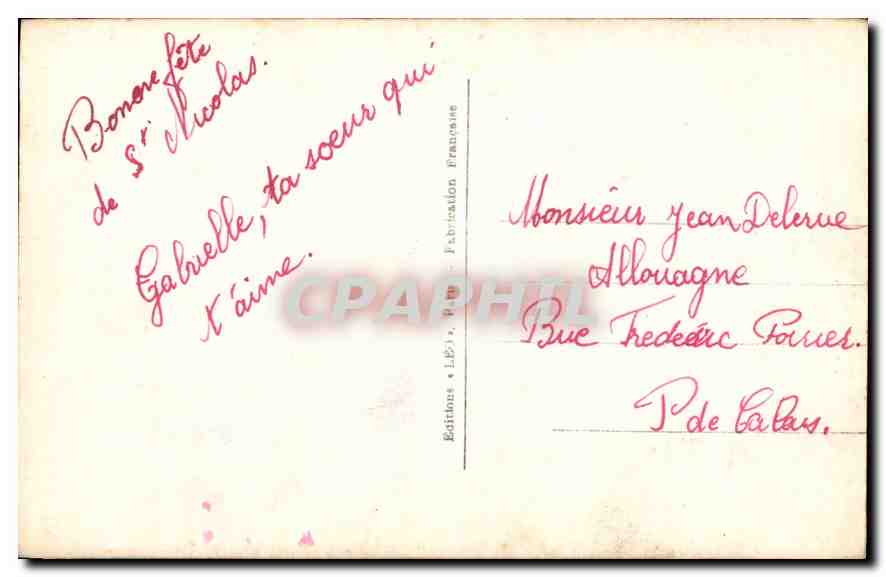 Bonne fête
de St Nicolas.
Gabrielle, ta soeur qui
t'aime.
Editions « LEO », Paris - Fabrication Française
Monsieur Jean Delerue
Allouagne
Rue Frédéric Poirier.
P de Calais.
CPAPHIL